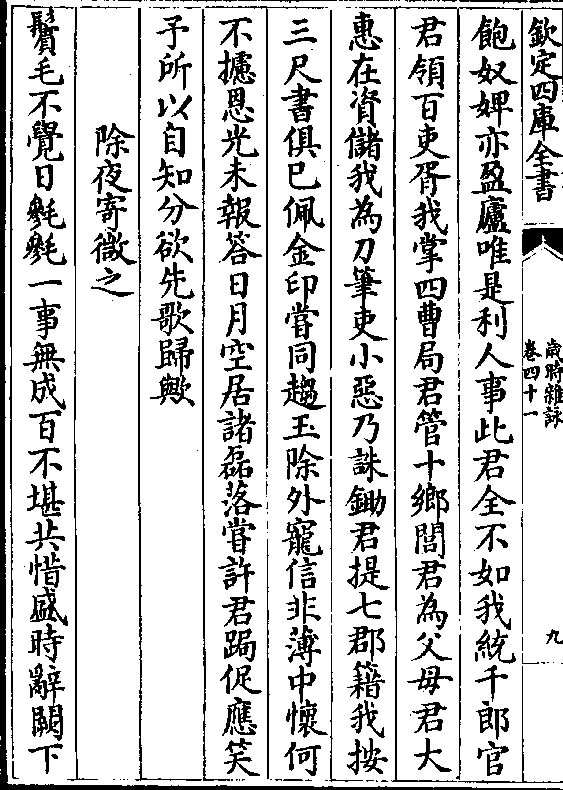 欽定四庫全書
歳時雜詠
卷四十一
九
飽奴婢亦盈廬唯是利人事此君全不如我統千郎官
君領百吏胥我掌四曹局君管十鄉閭君為父母君大
惠在資儲我為刀筆吏小惡乃誅鋤君提七郡籍我按
三尺書俱已佩金印嘗同趨玉除外寵信非薄中懷何
不攄恩光未報答日月空居諸磊落嘗許君跼促應笑
予所以自知分欲先歌歸歟
除夜寄微之
鬢毛不覺日毿毿一事無成百不堪共惜盛時辭闕下